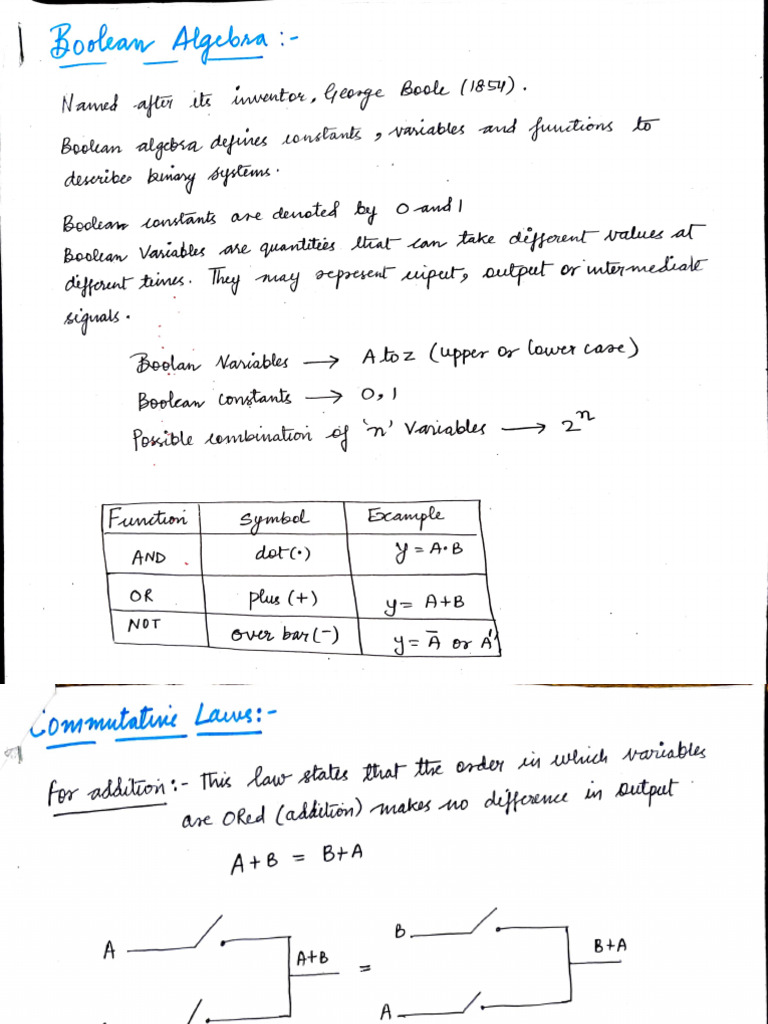 Boolean Algebra :-
Named after its inventor, George Boole (1854).
Boolean algebra defines constants, variables and functions to
describe binary systems.
Boolean constants are denoted by 0 and 1
Boolean Variables are quantities that can take different values at
different times. They may represent input, output or intermediate
signals.
Boolan Variables → A to Z (upper or lower case)
Boolean constants → 0, 1
Possible combination of 'n' Variables → 2ⁿ
Function Symbol Example
AND dot(·) y = A·B
OR plus (+) y = A+B
NOT over bar(–) y = A̅ or A'
Commutative Laws:-
For addition:- This law states that the order in which variables
are ORed (addition) makes no difference in output
A+B = B+A
A A+B = B B+A
A